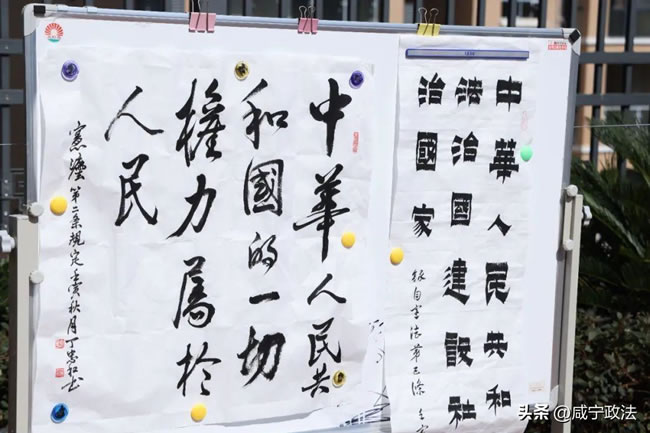 中華人民共和
法治國建設社
治國家
自憲法第五條
中華人民共
和國的一切
權力屬於
人民
憲灋第二条規定壬寅秋月丁
头条 @咸宁政法